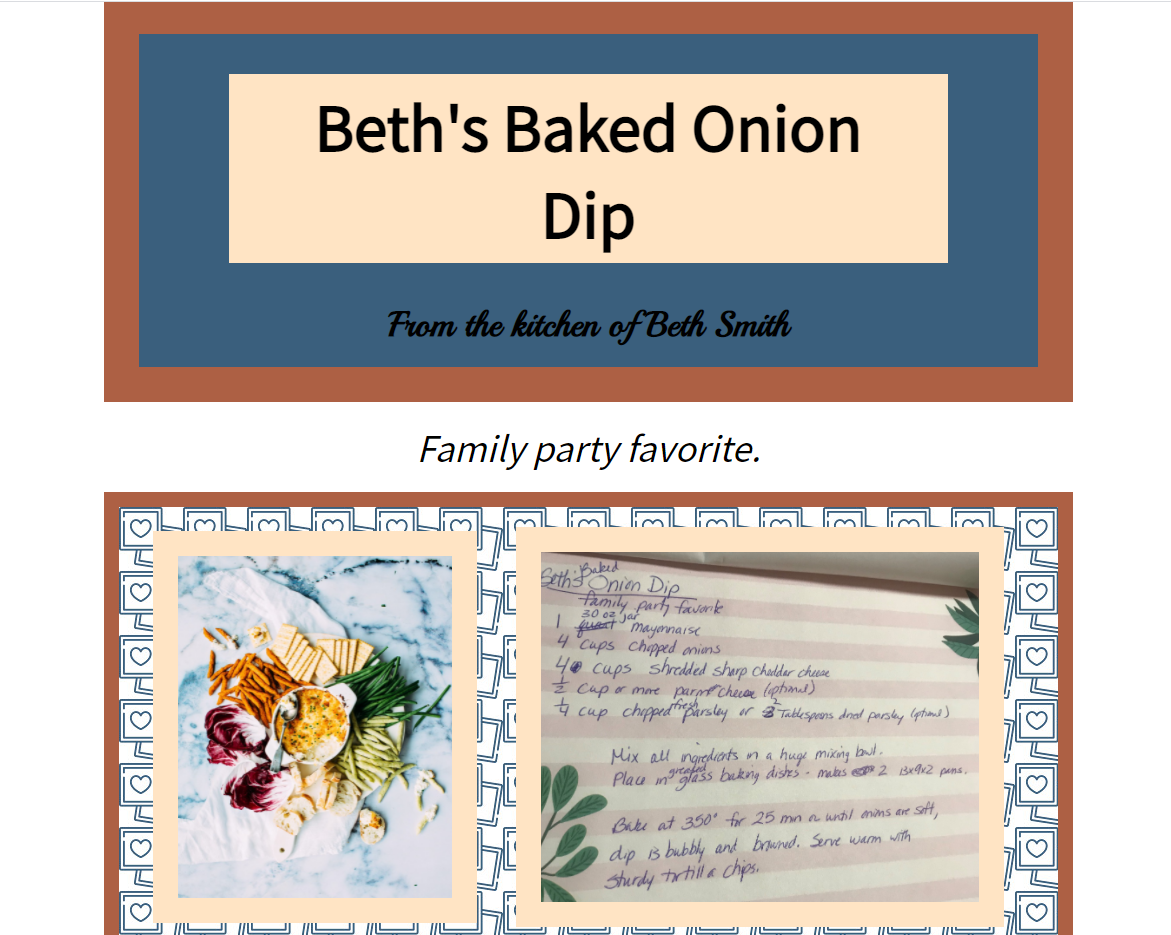 Beth's Baked Onion
Dip
From the kitchen of Beth Smith
Family party favorite.
Baked
Beth's Onion Dip
family party favorite
30 oz jar
1 quart mayonnaise
4 cups chopped onions
4 cups shredded sharp cheddar cheese
1/2 cup or more parm cheese (optional)
fresh
1/4 cup chopped parsley or 2 Tablespoons dried parsley (optional)
Mix all ingredients in a huge mixing bowl.
greased
Place in glass baking dishes - makes 2 13x9x2 pans.
Bake at 350° for 25 min or until onions are soft,
dip is bubbly and browned. Serve warm with
sturdy tortilla chips.